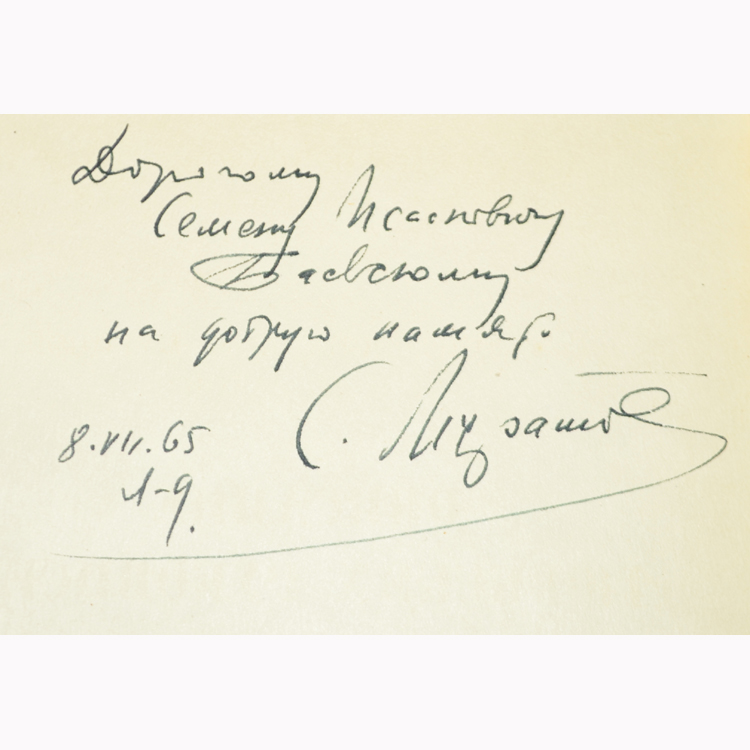 Дорогому
Семену Исааковичу
Баевскому
на добрую память
С. Музатов
8.VII.65
Л-д.